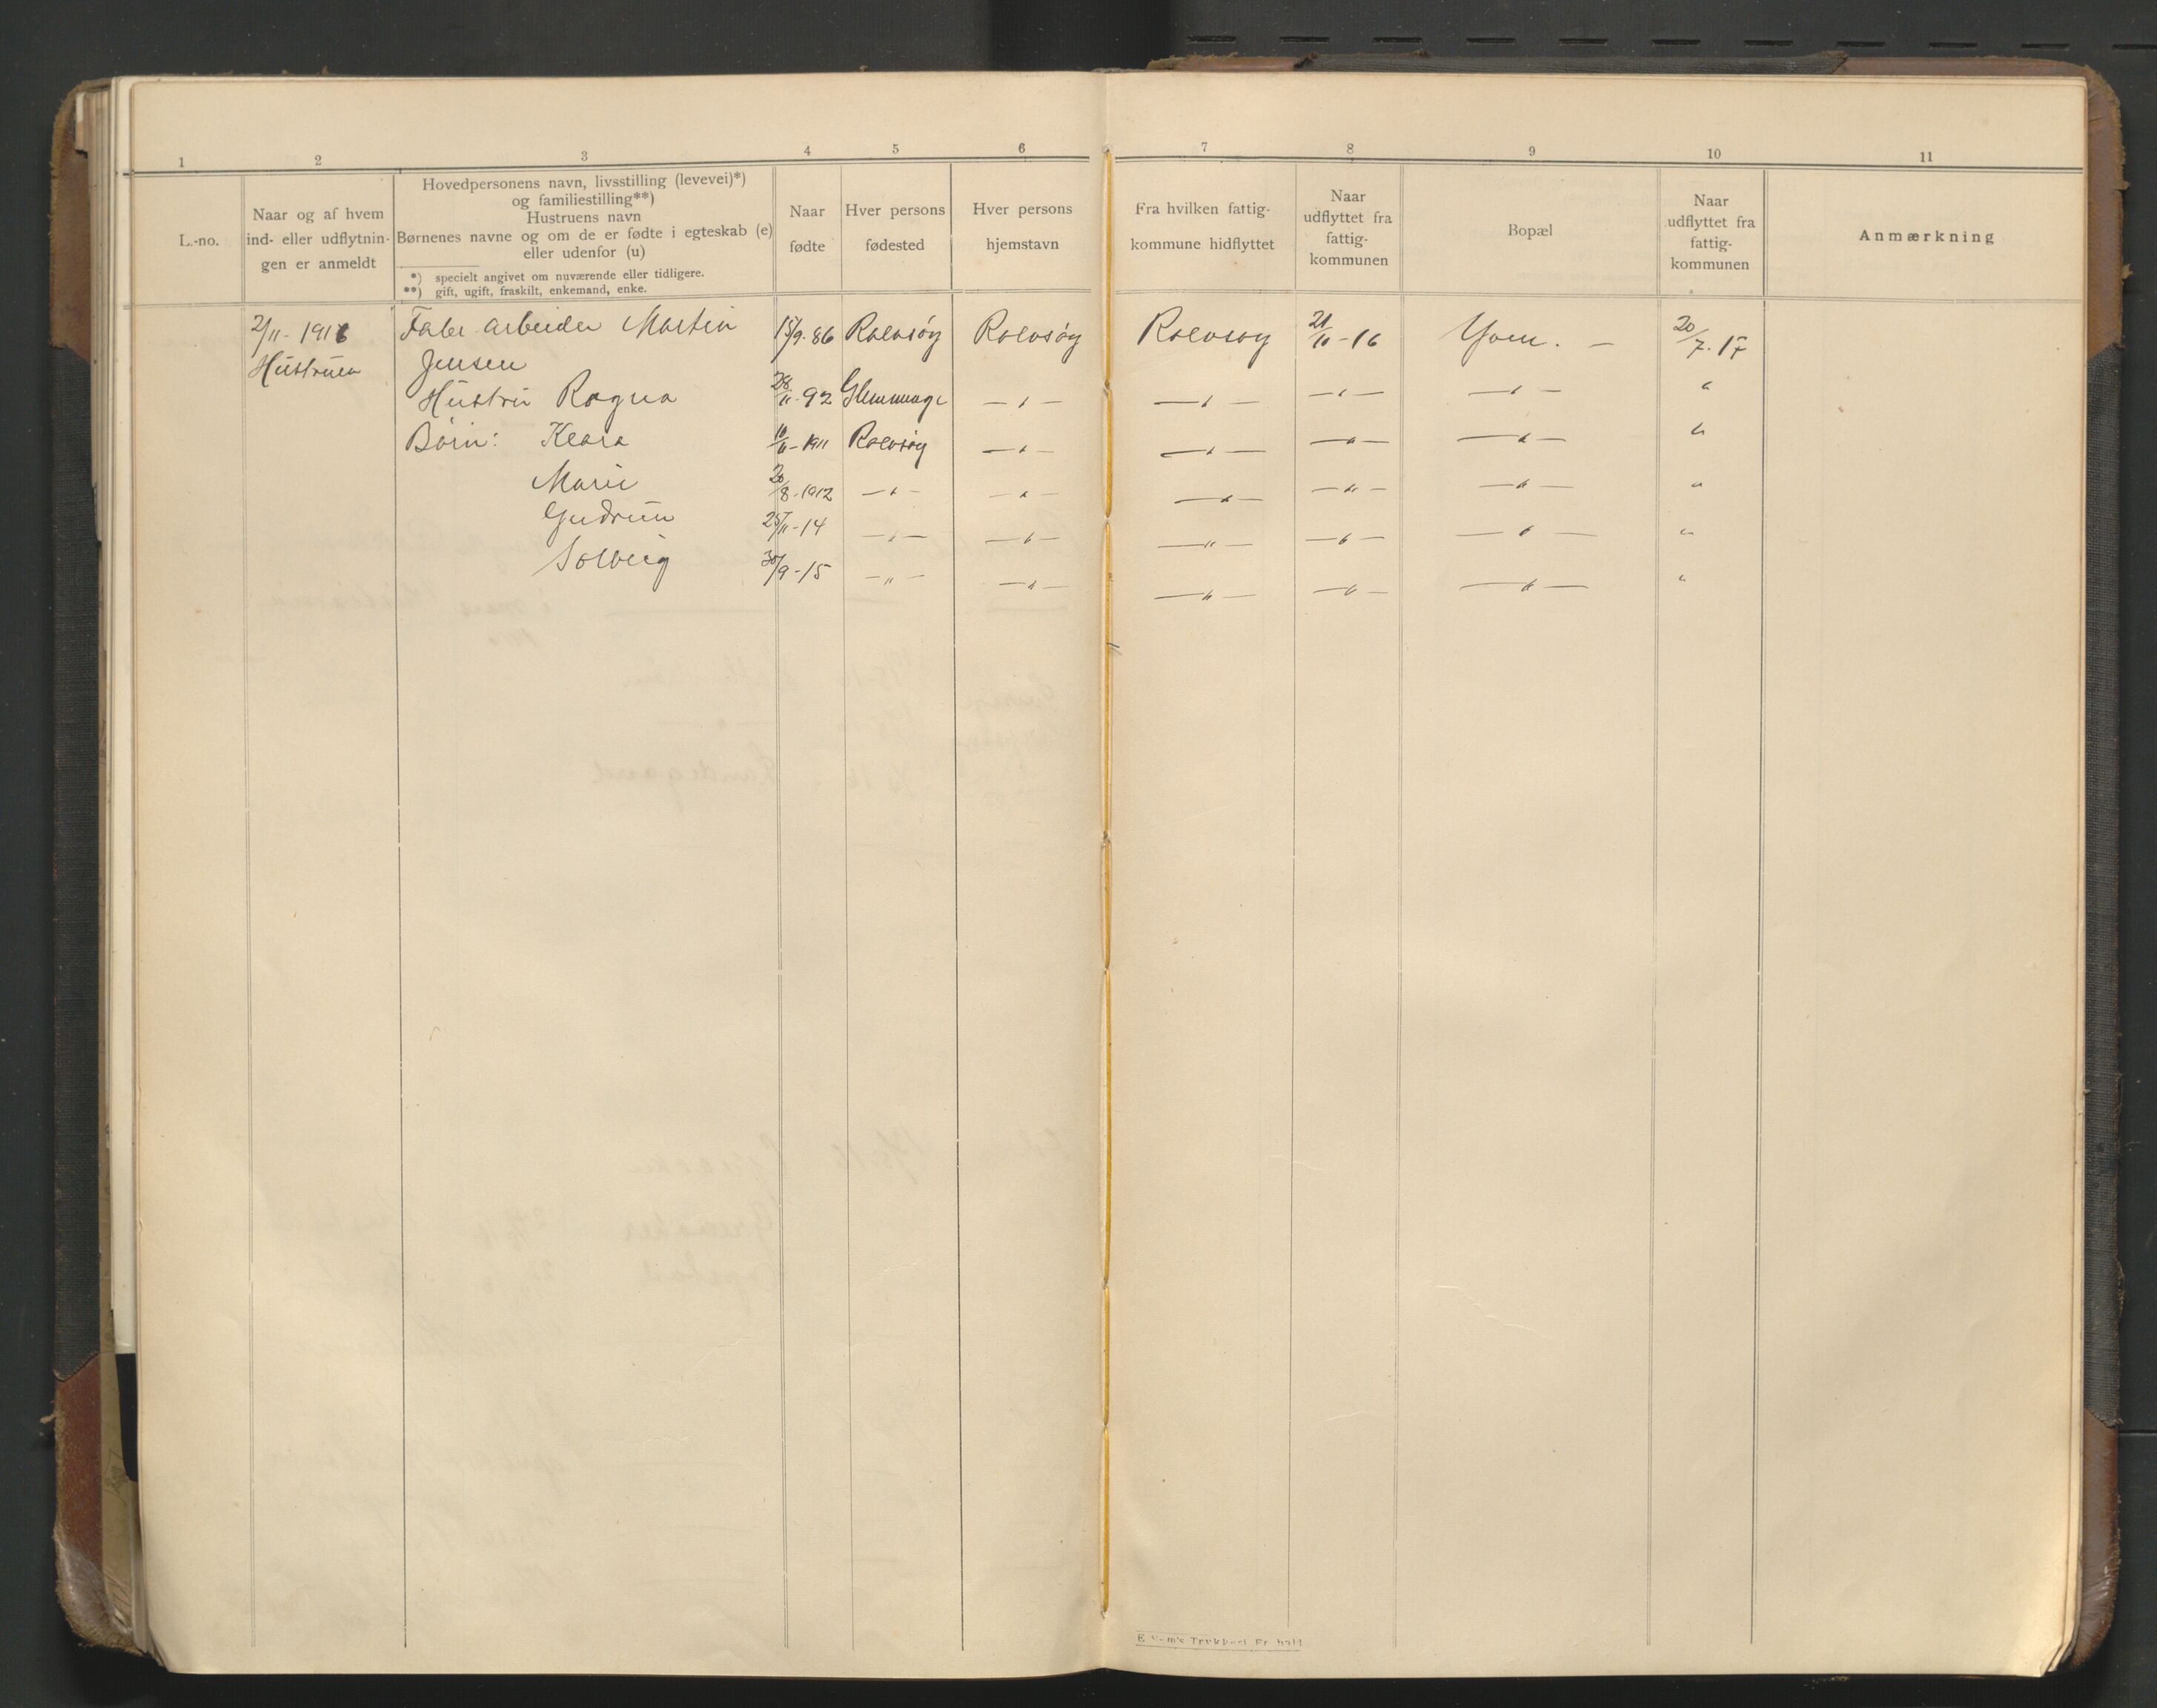 1 2 3 4 5 6 7 8 9 10 11
L.-no.
Naar og af hvem
ind- eller udflytnin-
gen er anmeldt
Hovedpersonens navn, livsstilling (levevei)*)
og familiestilling**)
Hustruens navn
Børnenes navne og om de er fødte i egteskab (e)
eller udenfor (u)
*) specielt angivet om nuværende eller tidligere.
**) gift, ugift, fraskilt, enkemand, enke.
Naar
fødte
Hver persons
fødested
Hver persons
hjemstavn
Fra hvilken fattig-
kommune hidflyttet
Naar
udflyttet fra
fattig-
kommunen
Bopæl
Naar
udflyttet fra
fattig-
kommunen
Anmærkning
2/11-1916 Fabr. arbeider Martin 15/9-86 Rolvsøy Rolvsøy Rolvsøy -16 20/7-17
Hustruen Jensen
Hustru Ragna 28/11-92 Glemminge -"- -"- -"- -"- "
Børn: Klara -1911 Rolvsøy -"- -"- -"- -"- "
Marie 20/8-1912 -"- -"- -"- -"- -"- "
Gudrun 25/11-14 -"- -"- -"- -"- -"- "
Solveig 30/9-15 -"- -"- -"- -"- -"- "